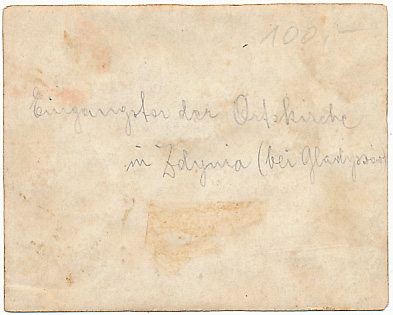 100,-
Eingangstor der Ortskirche
in Zdynia (bei Gladyszow